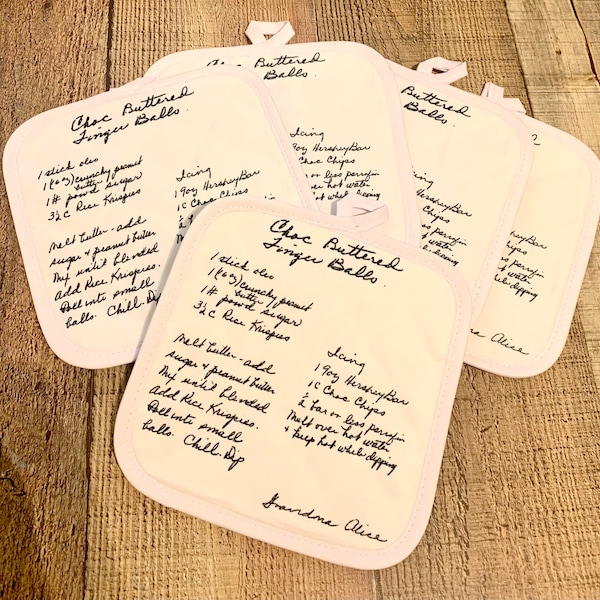 Choc Buttered
Finger Balls.
1 stick oleo
1 (6oz) crunchy peanut
butter
1# powd sugar
3½ C Rice Krispies
Melt butter - add
sugar & peanut butter
Mix until blended
Add Rice Krispies.
Roll into small
balls. Chill. Dip
Icing
1 9oz Hershey Bar
1 C Choc Chips
½ bar or less parafin
Melt over hot water
& keep hot while dipping
Grandma Alise
Choc Buttered
Finger Balls.
1 stick oleo
1 (6oz) crunchy peanut
butter
1# powd sugar
3½ C Rice Krispies
Melt butter - add
sugar & peanut butter
Mix until blended
Add Rice Krispies
Roll into small
balls. Chill. Dip
Icing
1 9oz Hershey Bar
1 C Choc
½
Choc Buttered
Balls.
Icing
9oz Hershey Bar
Choc Chips
bar or less parafin
over hot water
hot while dipping
Buttered
Balls.
Icing
Hershey Bar
Chips
less parafin
hot water
while dipping
Icing
Hershey Bar
Chips
less parafin
hot water
while dipping
Grandma Alise